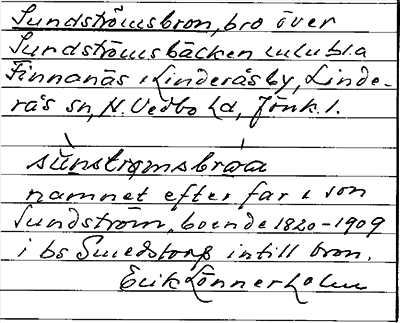 Sundströmsbron, bro över
Sundströmsbäcken
Finnanäs i Linderåsby, Linde-
rås sn, N. Vedbo hd, Jönk. l.
sùnstrømsbróa
namnet efter far i son
Sundström, boende 1820-1909
i bs Smedstorp intill bron.
Erik Lönnerholm